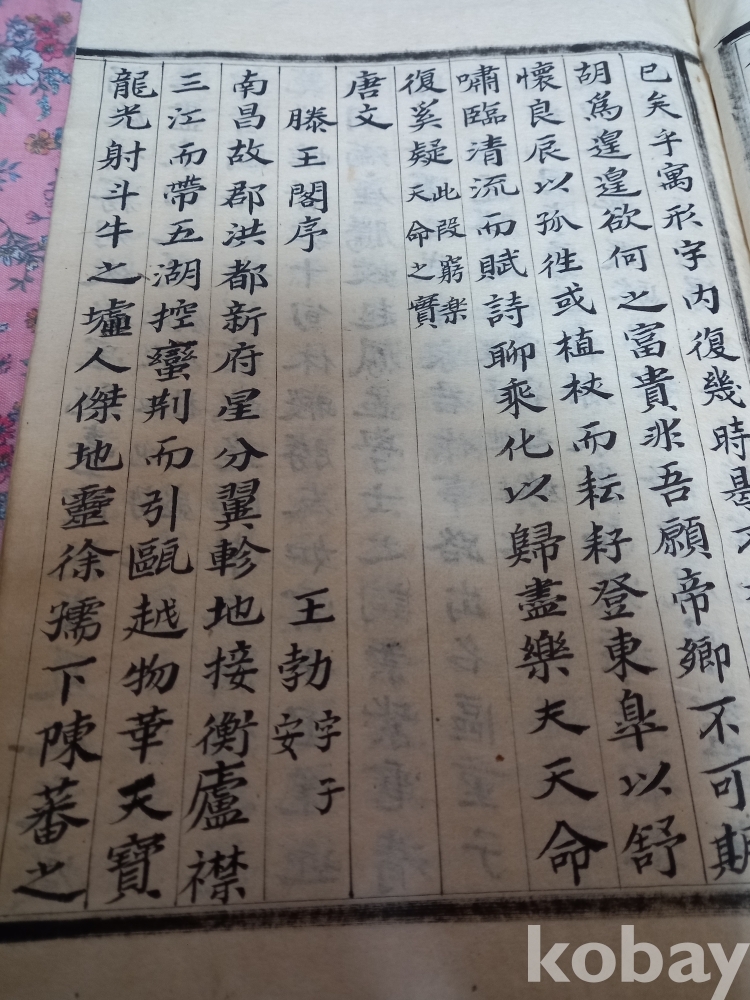 已矣乎寓形宇內復幾時曷不
胡爲遑遑欲何之富貴非吾願帝鄉不可期
懷良辰以孤徃或植杖而耘耔登東皐以舒
嘯臨清流而賦詩聊乘化以歸盡樂夫天命
復奚疑此段窮樂天命之實
唐文
滕王閣序 王勃字子安
南昌故郡洪都新府星分翼軫地接衡廬襟
三江而帶五湖控蠻荆而引甌越物華天寶
龍光射斗牛之墟人傑地靈徐孺下陳蕃之
kobay